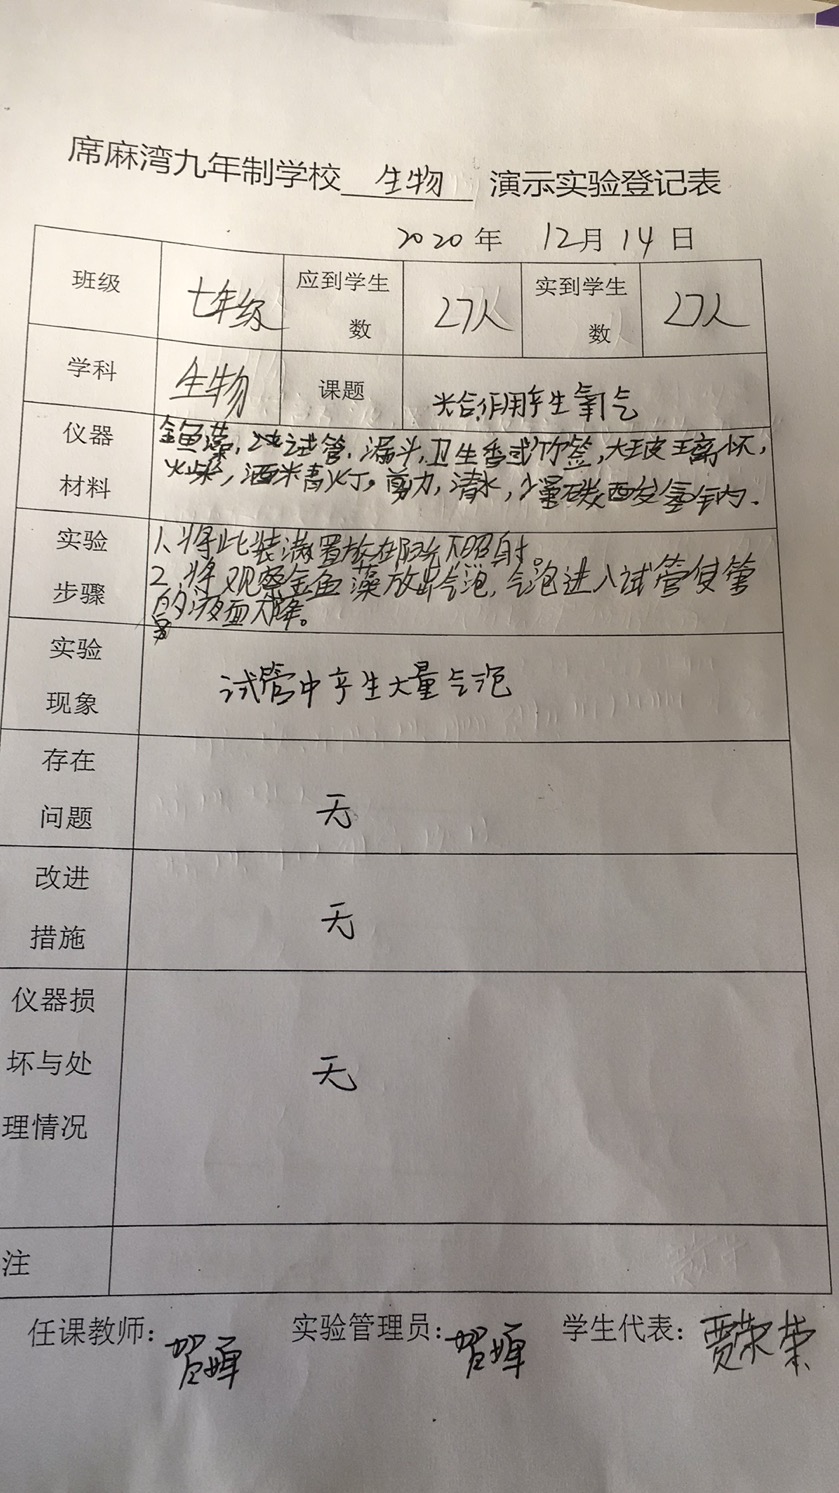 席麻湾九年制学校 生物 演示实验登记表
2020年 12月14日
班级 七年级 应到学生数 27人 实到学生数 27人
学科 生物 课题 光合作用产生氧气
仪器材料 金鱼藻, 试管, 漏斗, 卫生香或竹签, 大玻璃杯,
火柴, 酒精灯, 剪刀, 清水, 少量碳酸氢钠.
实验步骤 1、将此装满置放在阳光下照射。
2、将观察金鱼藻放出气泡, 气泡进入试管使管
的液面下降。
实验现象 试管中产生大量气泡
存在问题 无
改进措施 无
仪器损坏与处理情况 无
注
任课教师: 实验管理员: 学生代表: 贾荣荣